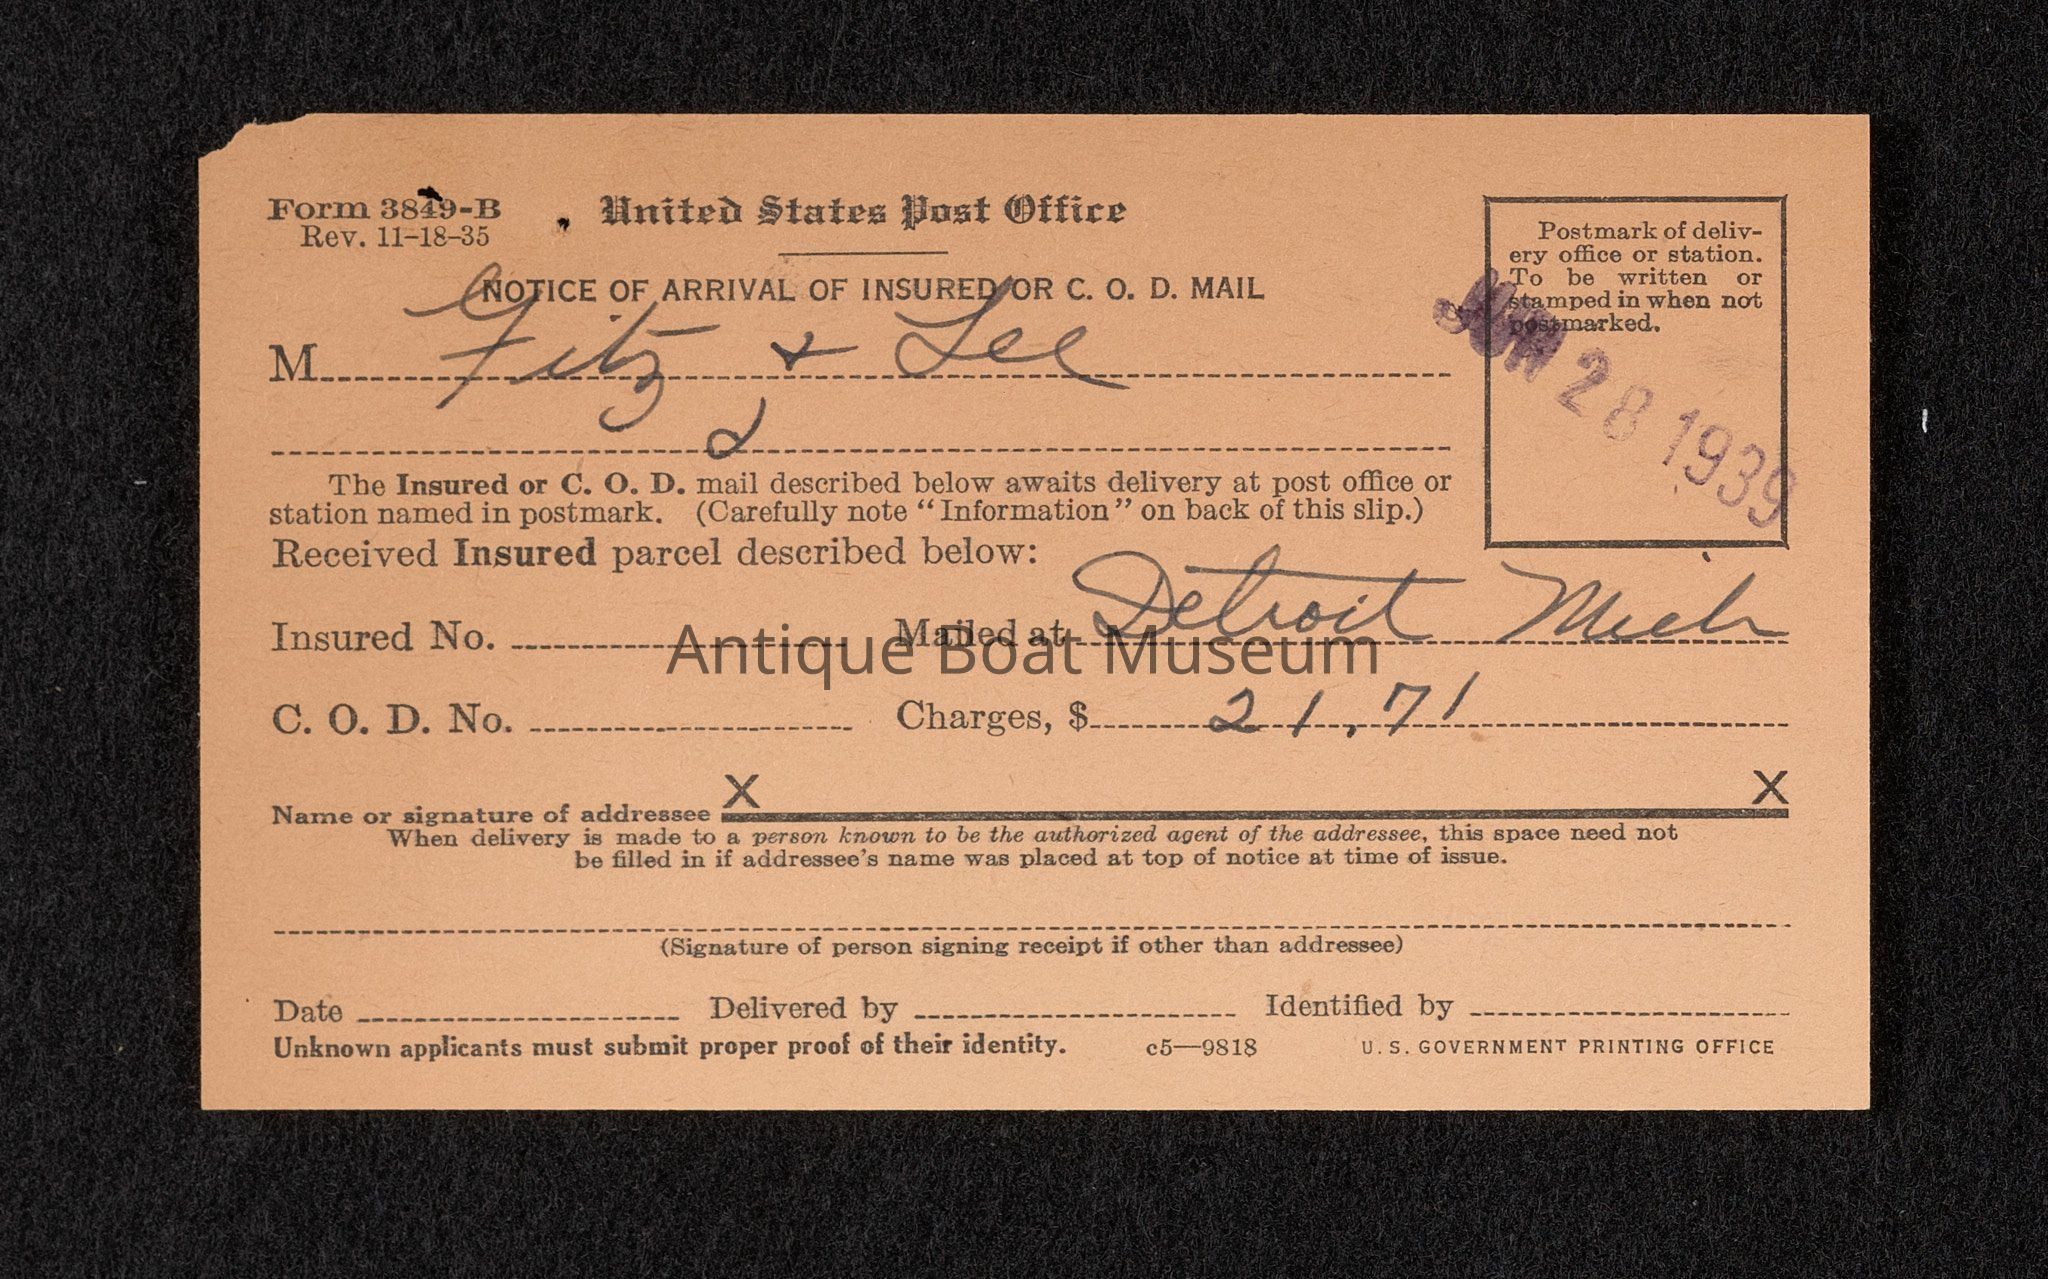 Form 3849-B
Rev. 11-18-35
United States Post Office
NOTICE OF ARRIVAL OF INSURED OR C. O. D. MAIL
Postmark of deliv-
ery office or station.
To be written or
stamped in when not
postmarked.
28 1939
M. Fitz & Lee
The Insured or C. O. D. mail described below awaits delivery at post office or
station named in postmark. (Carefully note "Information" on back of this slip.)
Received Insured parcel described below:
Insured No. Mailed at Detroit Mich
Antique Boat Museum
C. O. D. No. Charges, $ 21.71
X X
Name or signature of addressee
When delivery is made to a person known to be the authorized agent of the addressee, this space need not
be filled in if addressee's name was placed at top of notice at time of issue.
(Signature of person signing receipt if other than addressee)
Date Delivered by Identified by
Unknown applicants must submit proper proof of their identity. c5—9818 U. S. GOVERNMENT PRINTING OFFICE